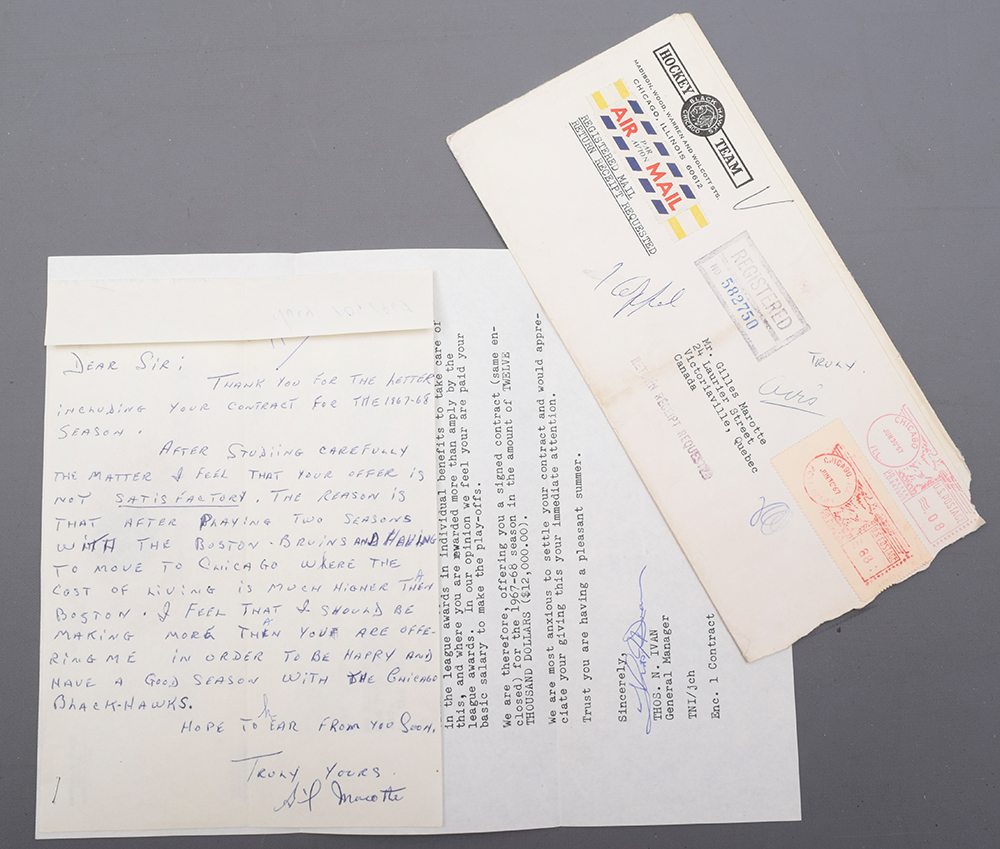 DEAR SIR:
THANK YOU FOR THE LETTER
INCLUDING YOUR CONTRACT FOR THE 1967-68
SEASON.
AFTER STUDIING CAREFULLY
THE MATTER I FEEL THAT YOUR OFFER IS
NOT SATISFACTORY. THE REASON IS
THAT AFTER PLAYING TWO SEASONS
WITH THE BOSTON-BRUINS AND HAVING
TO MOVE TO CHICAGO WHERE THE
COST OF LIVING IS MUCH HIGHER THAN
BOSTON. I FEEL THAT I SHOULD BE
MAKING MORE THAN YOU ARE OFFE-
RING ME IN ORDER TO BE HAPPY AND
HAVE A GOOD SEASON WITH THE CHICAGO
BLACK-HAWKS.
HOPE TO hEAR FROM YOU SOON.
TRULY YOURS.
Gil Marotte
in the league awards in individual benefits to take care of
this, and where you are awarded more than amply by the
league awards. In our opinion we feel your are paid your
basic salary to make the play-offs.
We are therefore, offering you a signed contract (same en-
closed) for the 1967-68 season in the amount of TWELVE
THOUSAND DOLLARS ($12,000.00).
We are most anxious to settle your contract and would appre-
ciate your giving this your immediate attention.
Trust you are having a pleasant summer.
Sincerely,
THOS. N. IVAN
General Manager
TNI/jch
Enc. 1 Contract
HOCKEY TEAM
BLACK HAWKS
CHICAGO
MADISON, WOOD, WARREN AND WOLCOTT STS.
CHICAGO, ILLINOIS 60612
AIR MAIL
PAR AVION
REGISTERED MAIL
RETURN RECEIPT REQUESTED
REGISTERED
NO 582750
Mr. Gilles Marotte
24 Laurier Street
Victoriaville, Quebec
Canada
RETURN RECEIPT REQUESTED
TRULY.
CHICAGO
CHICAGO